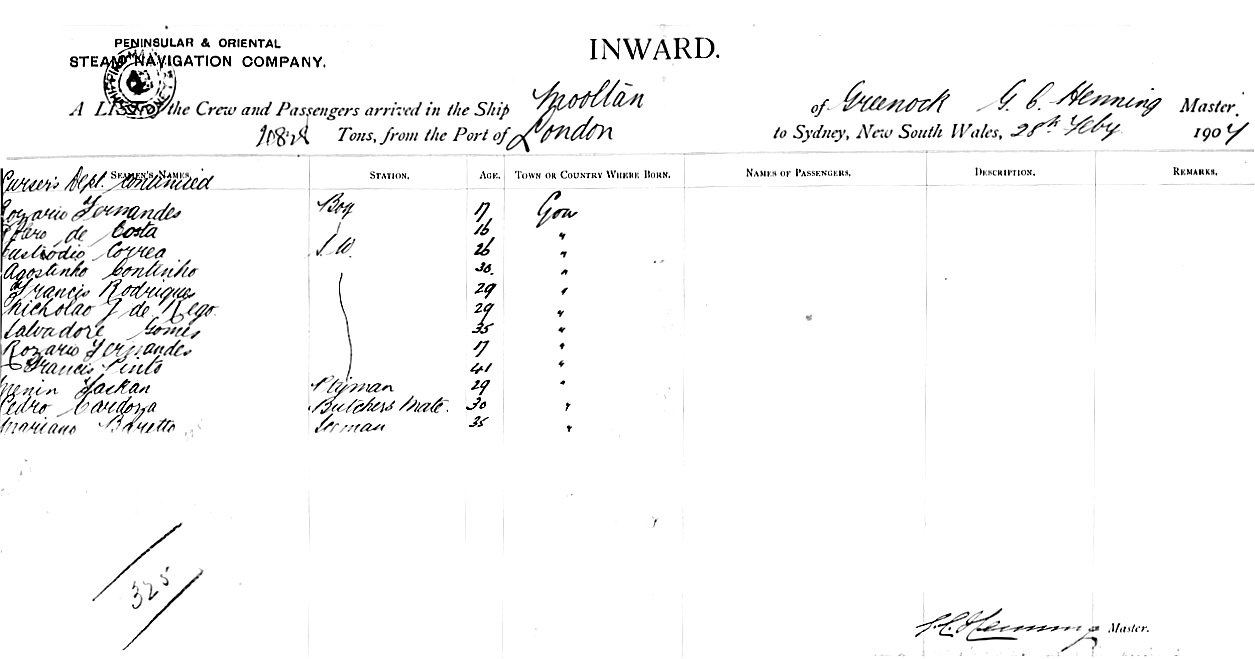 PENINSULAR & ORIENTAL
STEAM NAVIGATION COMPANY.
INWARD.
A LIST of the Crew and Passengers arrived in the Ship Mooltan of Greenock G. C. Henning Master.
Tons, from the Port of London to Sydney, New South Wales, 28th Feby 1907
SEAMEN'S NAMES. STATION. AGE. TOWN OR COUNTRY WHERE BORN. NAMES OF PASSENGERS. DESCRIPTION. REMARKS.
Purser's Dept. Continued
Rozario Fernandes Boy 17 Goa
de Costa 16 "
Custodio Correa S.W. 26 "
Agostinho Continho 30 "
Francis Rodrigues 29 "
Nicholao J de Rego 29 "
Salvadore Gomes 35 "
Rozario Fernandes 17 "
Francis Pinto 41 "
29 "
Pedro Cardoza Butchers Mate. 30 "
Mariano Baretto 35 "
325
G. C. Henning Master.